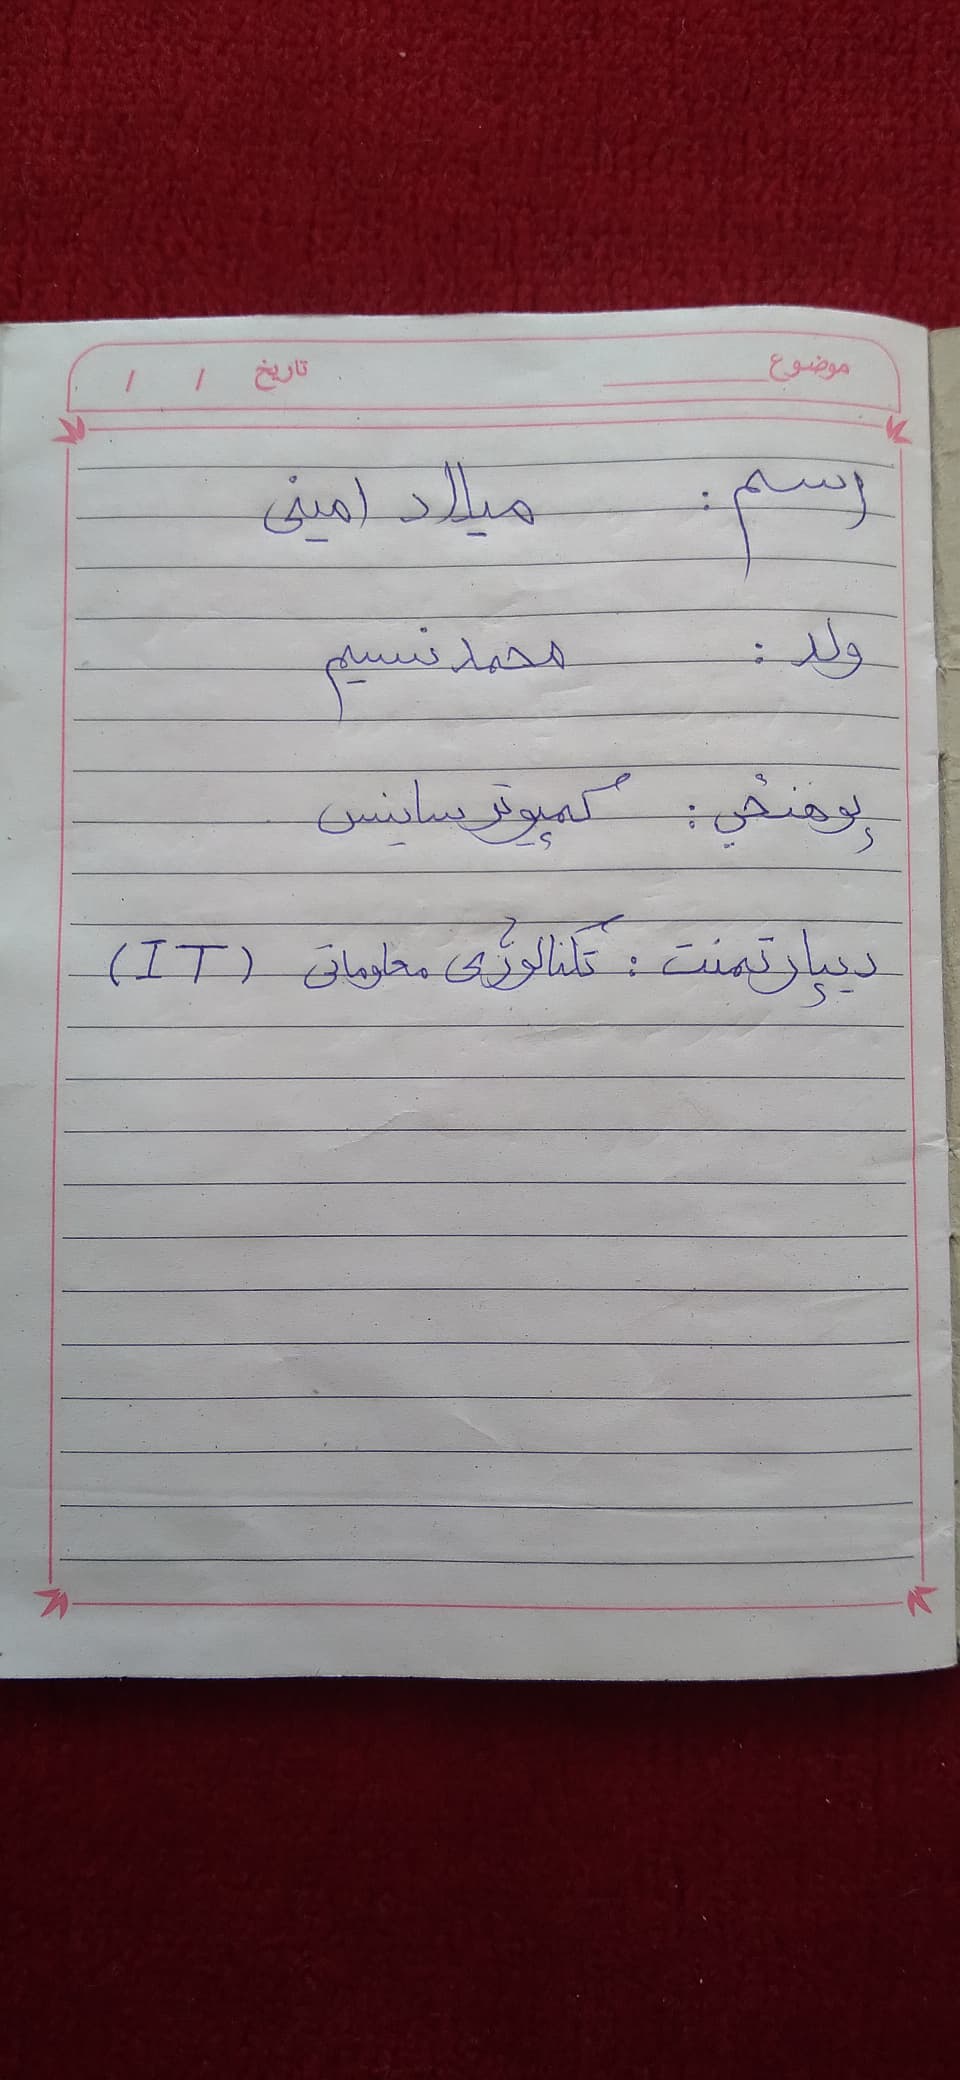 موضوع تاریخ / /
اسم : میلاد امینی
ولد : محمد نسیم
پوهنځی : کمپیوتر ساینس
دیپارتمنت : تکنالوژی معلوماتی (IT)